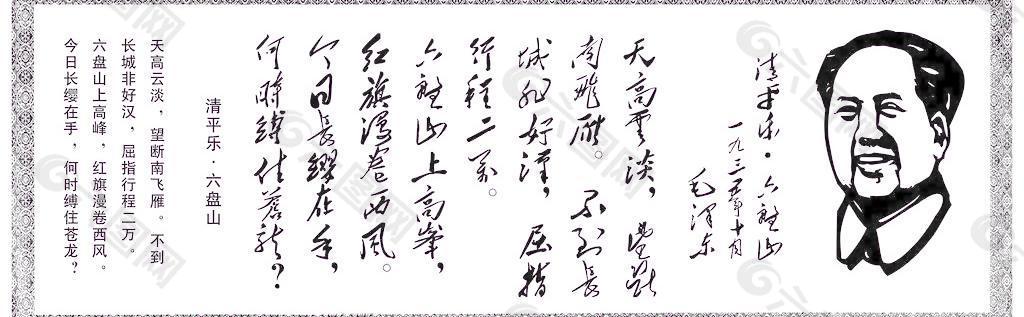 清平乐·六盘山
一九三五年十月
毛泽东
天高雲淡，望断
南飛雁。不到長
城非好漢，屈指
行程二万。
六盘山上高峯，
红旗漫卷西风。
今日長缨在手，
何時缚住苍龙？
清平乐·六盘山
天高云淡，望断南飞雁。不到
长城非好汉，屈指行程二万。
六盘山上高峰，红旗漫卷西风。
今日长缨在手，何时缚住苍龙？
六图网